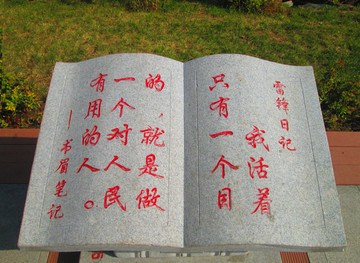 雷锋日记
我活着
只有一个目
的，就是做
一个对人民
有用的人。
—书眉笔记